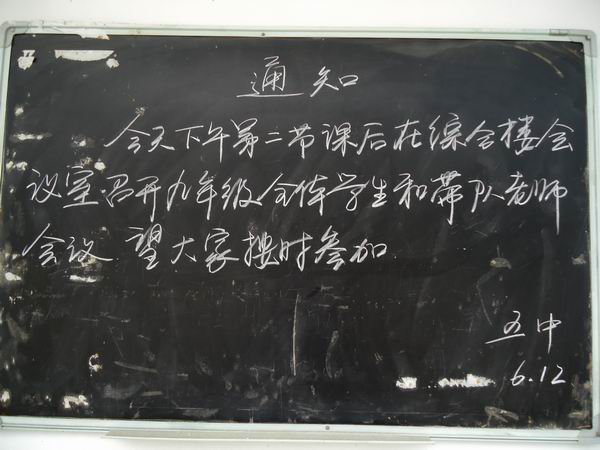 通知
今天下午第二节课后在综合楼会
议室召开九年级全体学生和带队老师
会议 望大家按时参加
五中
6.12